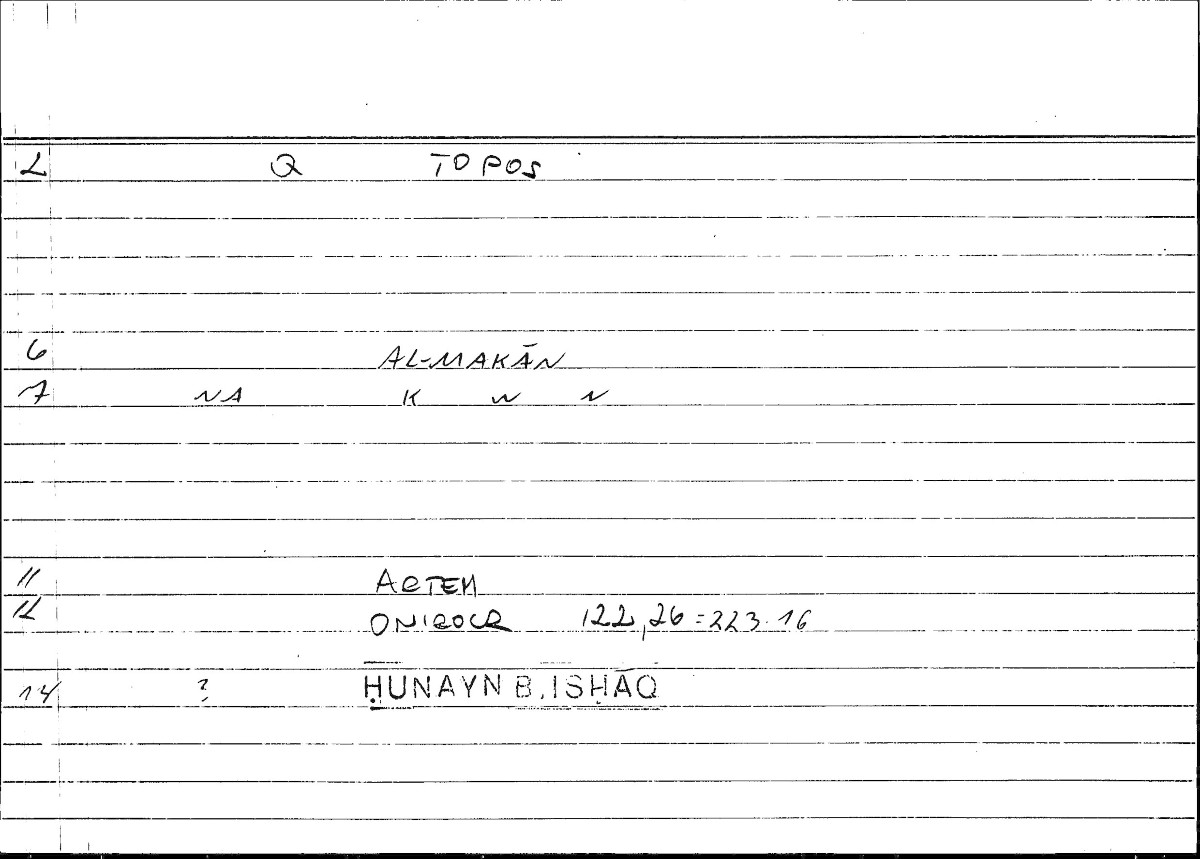 2 Q TOPOS
6 AL-MAKĀN
7 NA K W N
11 ARTEM
12 ONIROCR 122,26=223.16
14 ? ḤUNAYN B. ISḤĀQ